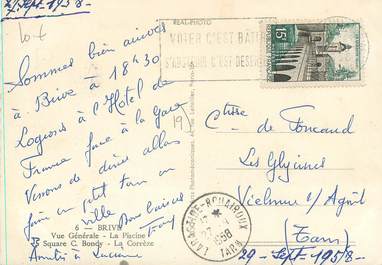 29 - Sept. 1958 -
10 f
Sommes bien arrivés
à Brive à 18h30
Logeons à l'Hotel de
France face à la Gare
Venons de dîner allons
faire un petit tour en
ville
Bons baisers
Tony
Amitiés à Lucienne
6 - BRIVE
Vue Générale - La Piscine
Square C. Bondy - La Corrèze
REAL-PHOTO
VOTER C'EST BATIR
S'ABSTENIR C'EST DESERTER
15F
19
Ctesse de Foucaud
Les Glycines
Vielmur s/ Agout
(Tarn)
29 - Sept. 1958 -
LABASTIDE-ROUAIROUX
1958
TARN